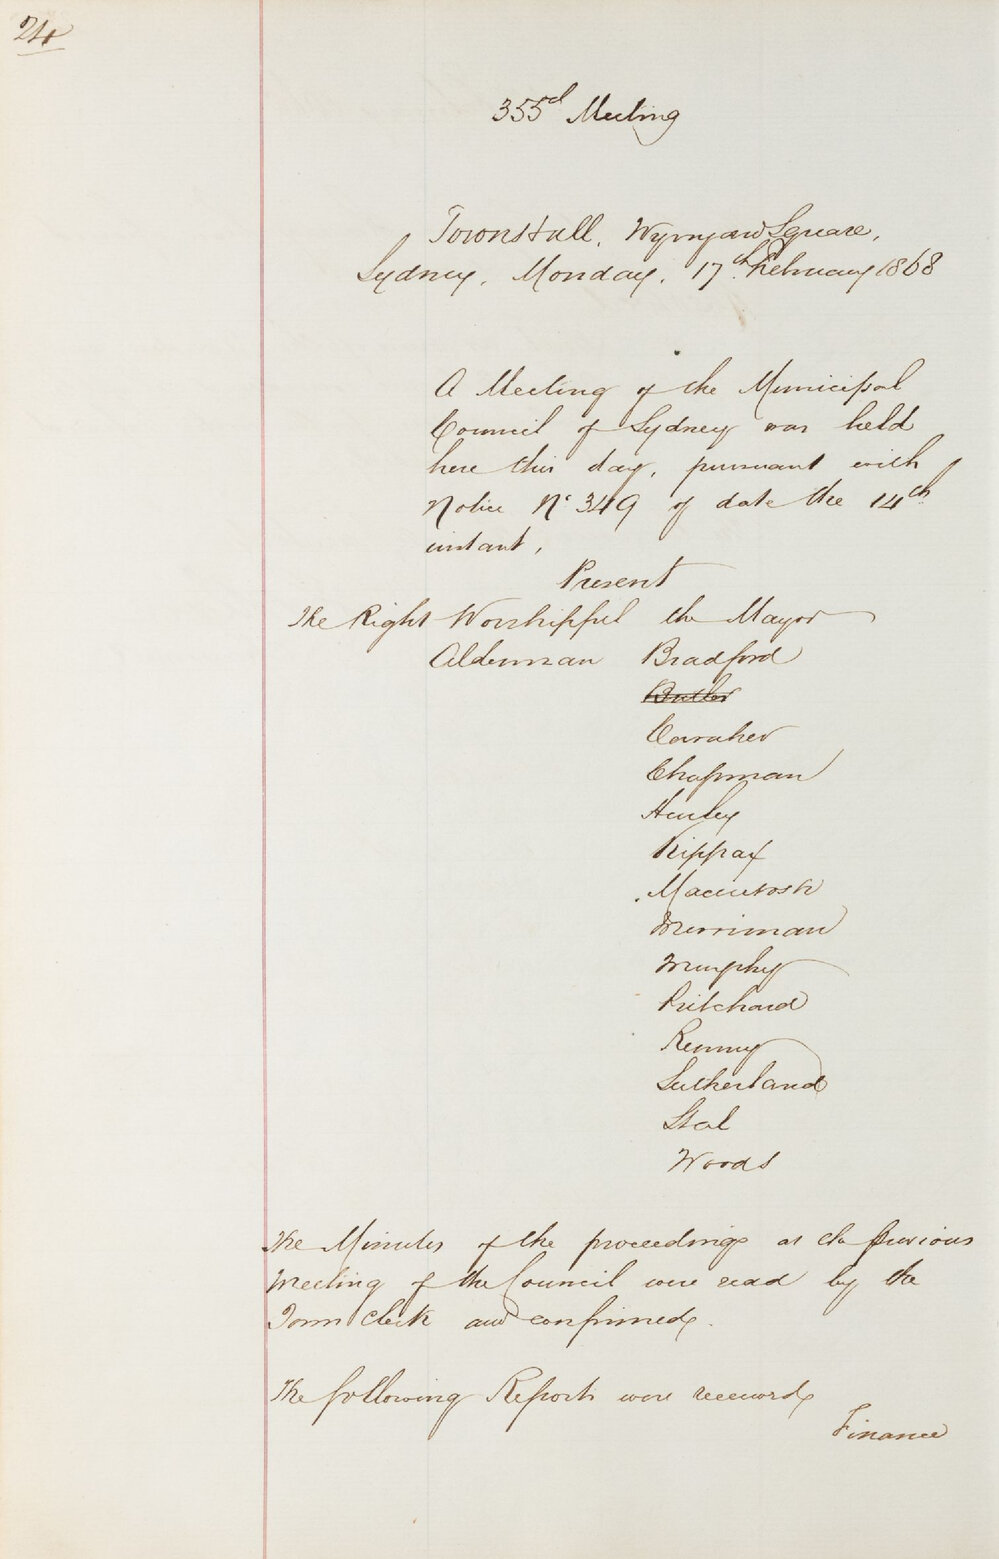 24
355d Meeting
Town Hall, Wynyard Square,
Sydney, Monday, 17th February 1868
A Meeting of the Municipal
Council of Sydney was held
here this day, pursuant with
Notice No 349 of date the 14th
instant,
Present
The Right Worshipful the Mayor
Alderman Bradford
Butler
Caraher
Chapman
Hurley
Kippax
Macintosh
Merriman
Murphy
Pritchard
Renny
Sutherland
Steel
Woods
The Minutes of the proceedings at the previous
Meeting of the Council were read by the
Town Clerk and confirmed.
The following Reports were received,
Finance